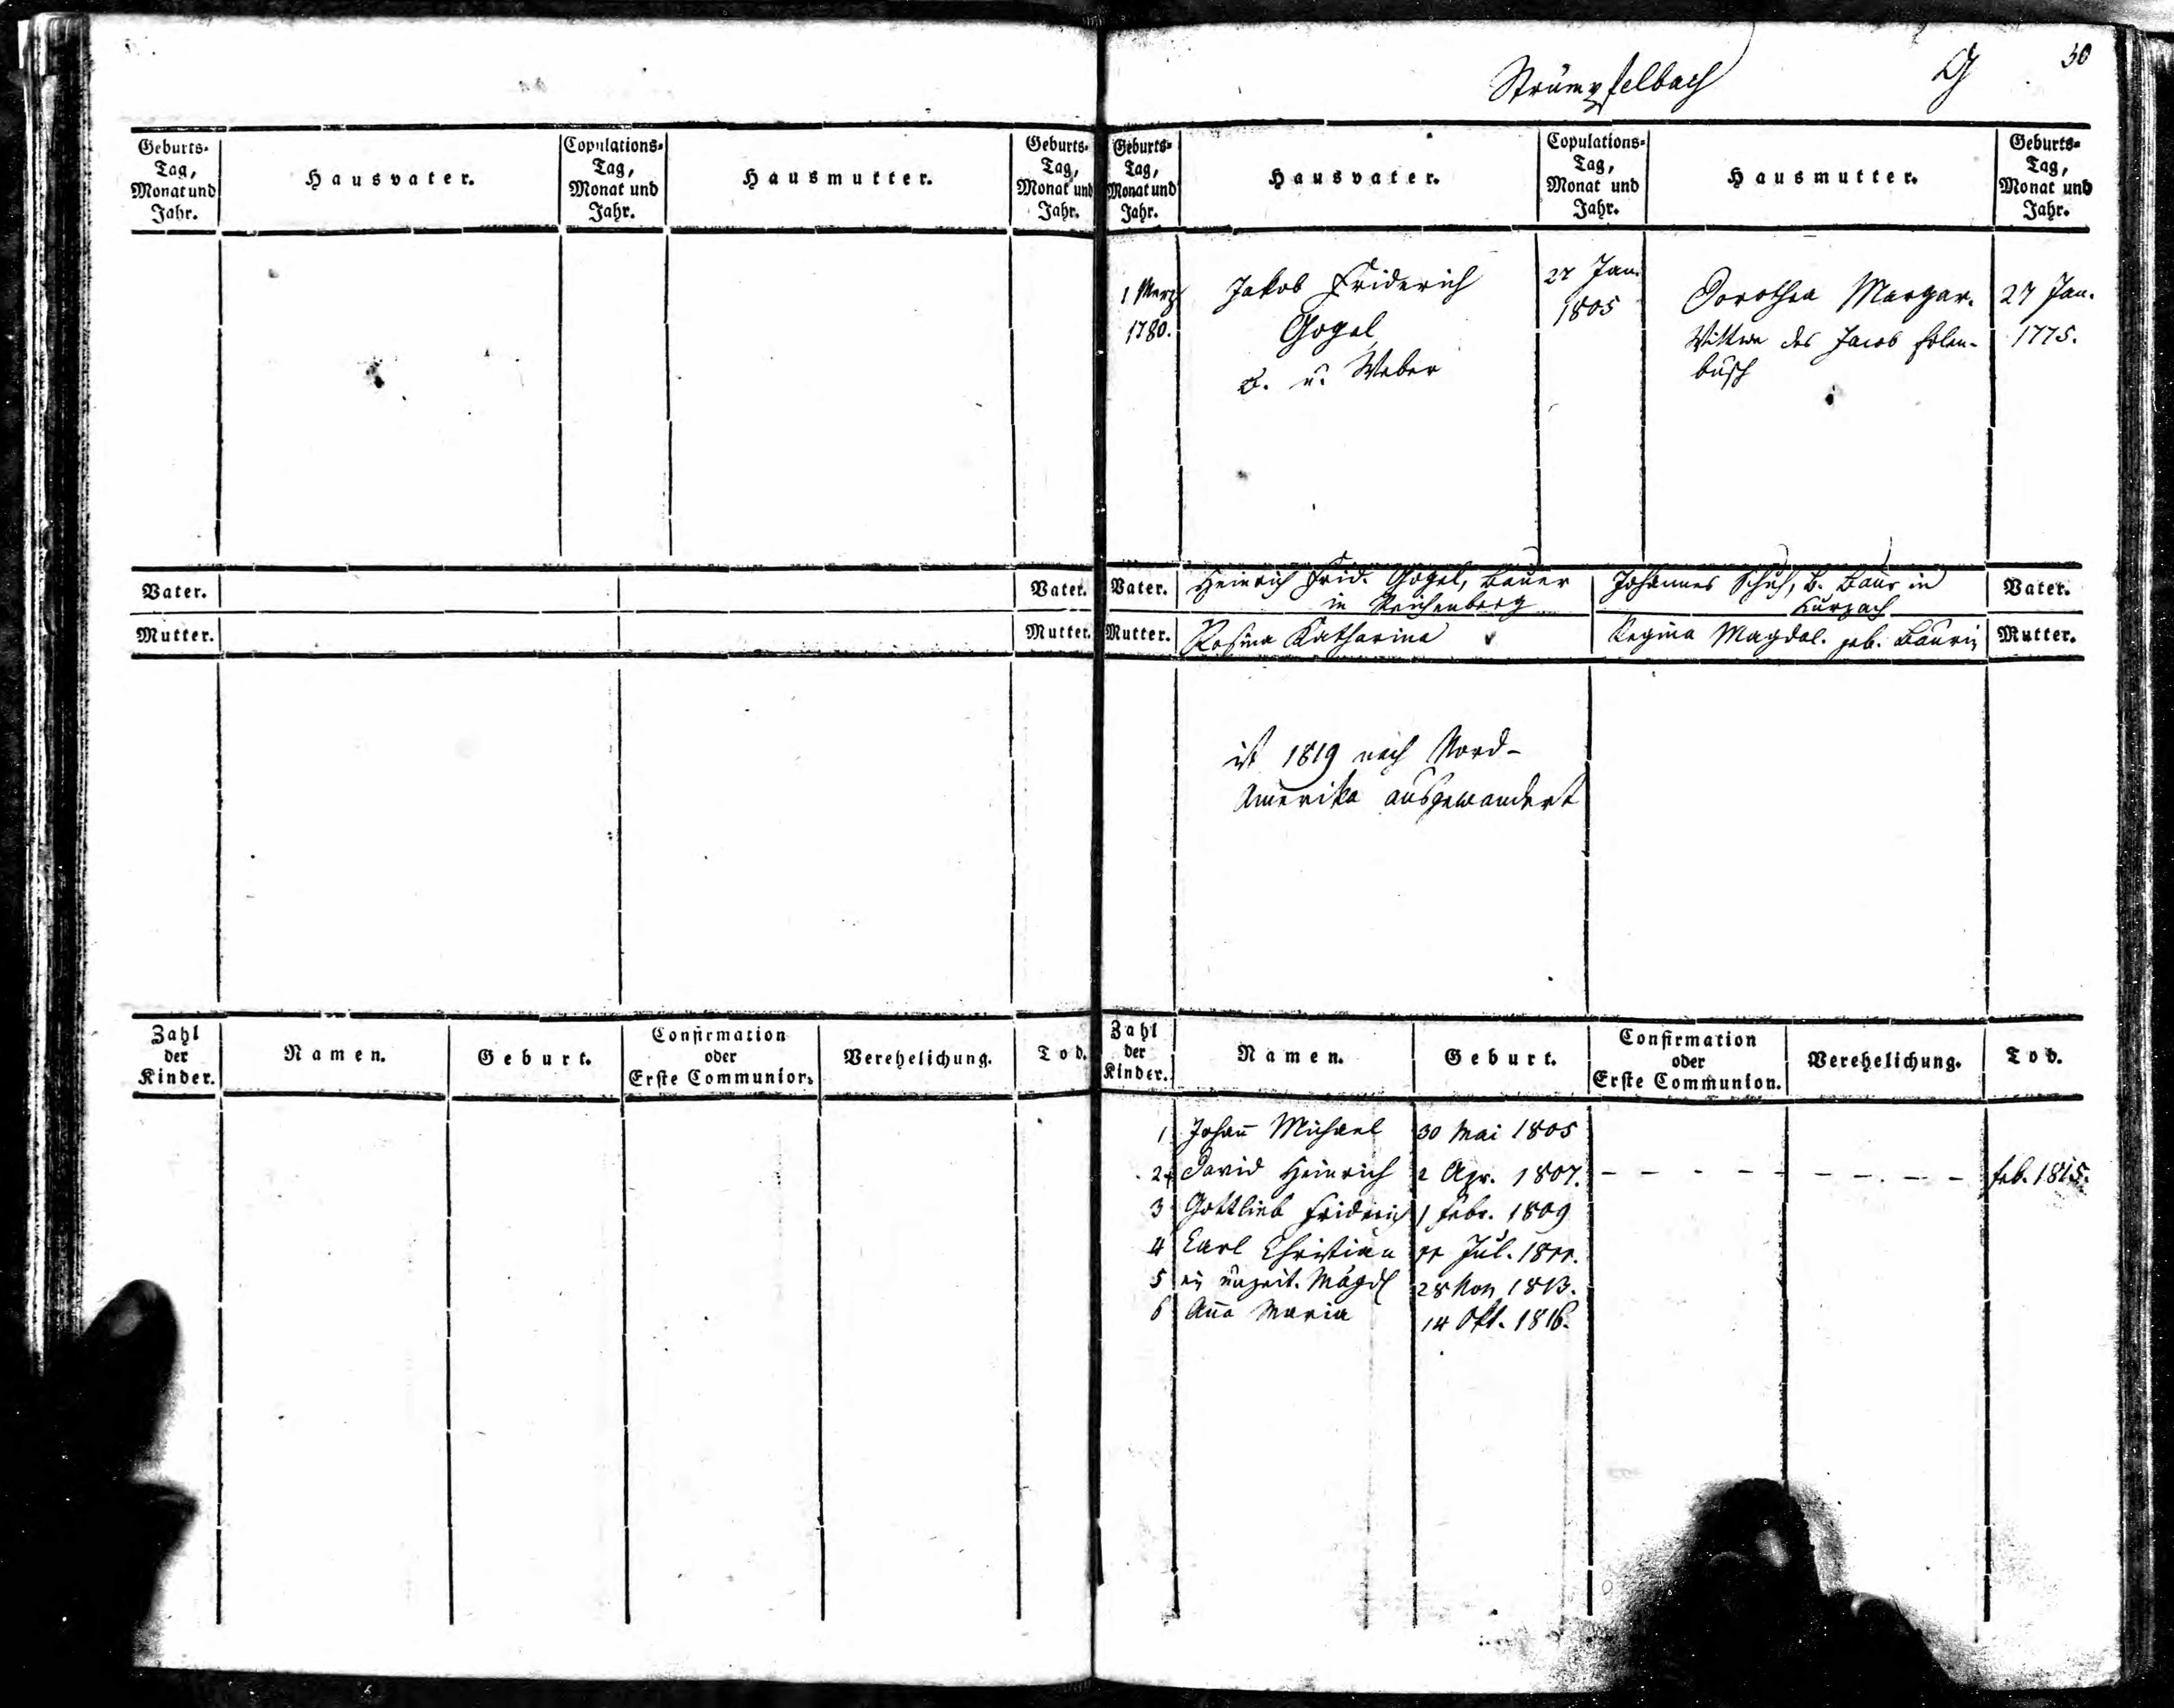 Strümpfelbach
G
50
Geburts-
Tag,
Monat und
Jahr.
Hausvater.
Copulations-
Tag,
Monat und
Jahr.
Hausmutter.
Geburts-
Tag,
Monat und
Jahr.
Vater.
Vater.
Mutter.
Mutter.
Zahl
der
Kinder.
Namen.
Geburt.
Confirmation
oder
Erste Communion.
Verehelichung.
Tod.
Geburts-
Tag,
Monat und
Jahr.
Hausvater.
Copulations-
Tag,
Monat und
Jahr.
Hausmutter.
Geburts-
Tag,
Monat und
Jahr.
1 Merz
1780.
Jakob Friderich
Gogel
B. u. Weber
27 Jan.
1805
Dorothea Margar.
Wittwe des Jacob
busch
27 Jan.
1775.
Vater.
Heinrich Frid. Gogel, Bauer
in Reichenberg
Johannes Schuh, B. Baur in
Kurzach
Vater.
Mutter.
Rosina Katharina
Regina Magdal. geb. Baurin
Mutter.
ist 1819 nach Nord-
Amerika ausgewandert
Zahl
der
Kinder.
Namen.
Geburt.
Confirmation
oder
Erste Communion.
Verehelichung.
Tod.
1 Johan̄ Michael 30 Mai 1805
2 David Heinrich 2 Apr. 1807. - - - - - - - - - feb. 1815.
3 Gottlieb Friderich 1 Febr. 1809
4 Carl Christian Jul. 1811.
5 ein unzeit. Mägdl 28 Nov 1813.
6 An̄a Maria 14 Okt. 1816.